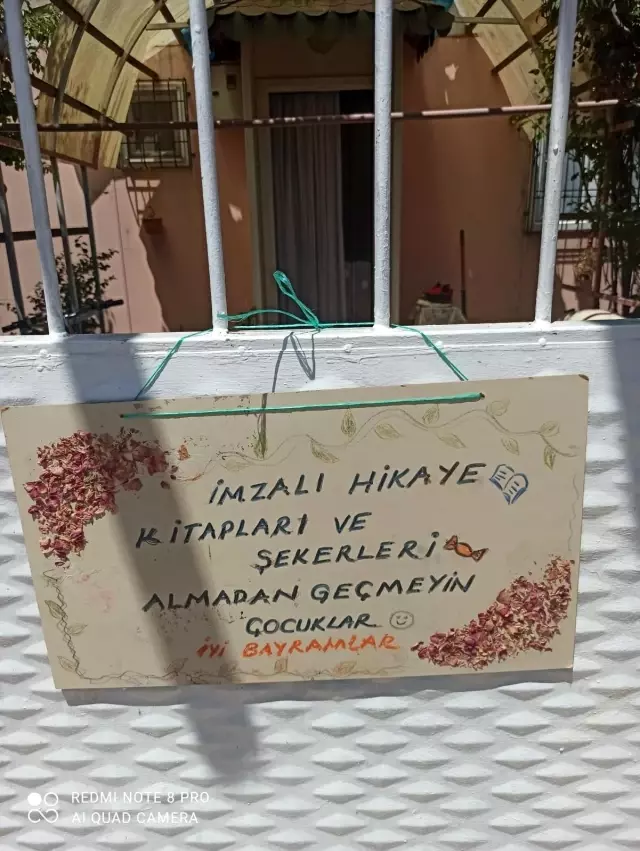 İMZALI HİKAYE
KİTAPLARI VE
ŞEKERLERİ
ALMADAN GEÇMEYİN
ÇOCUKLAR
İYİ BAYRAMLAR
REDMI NOTE 8 PRO
AI QUAD CAMERA